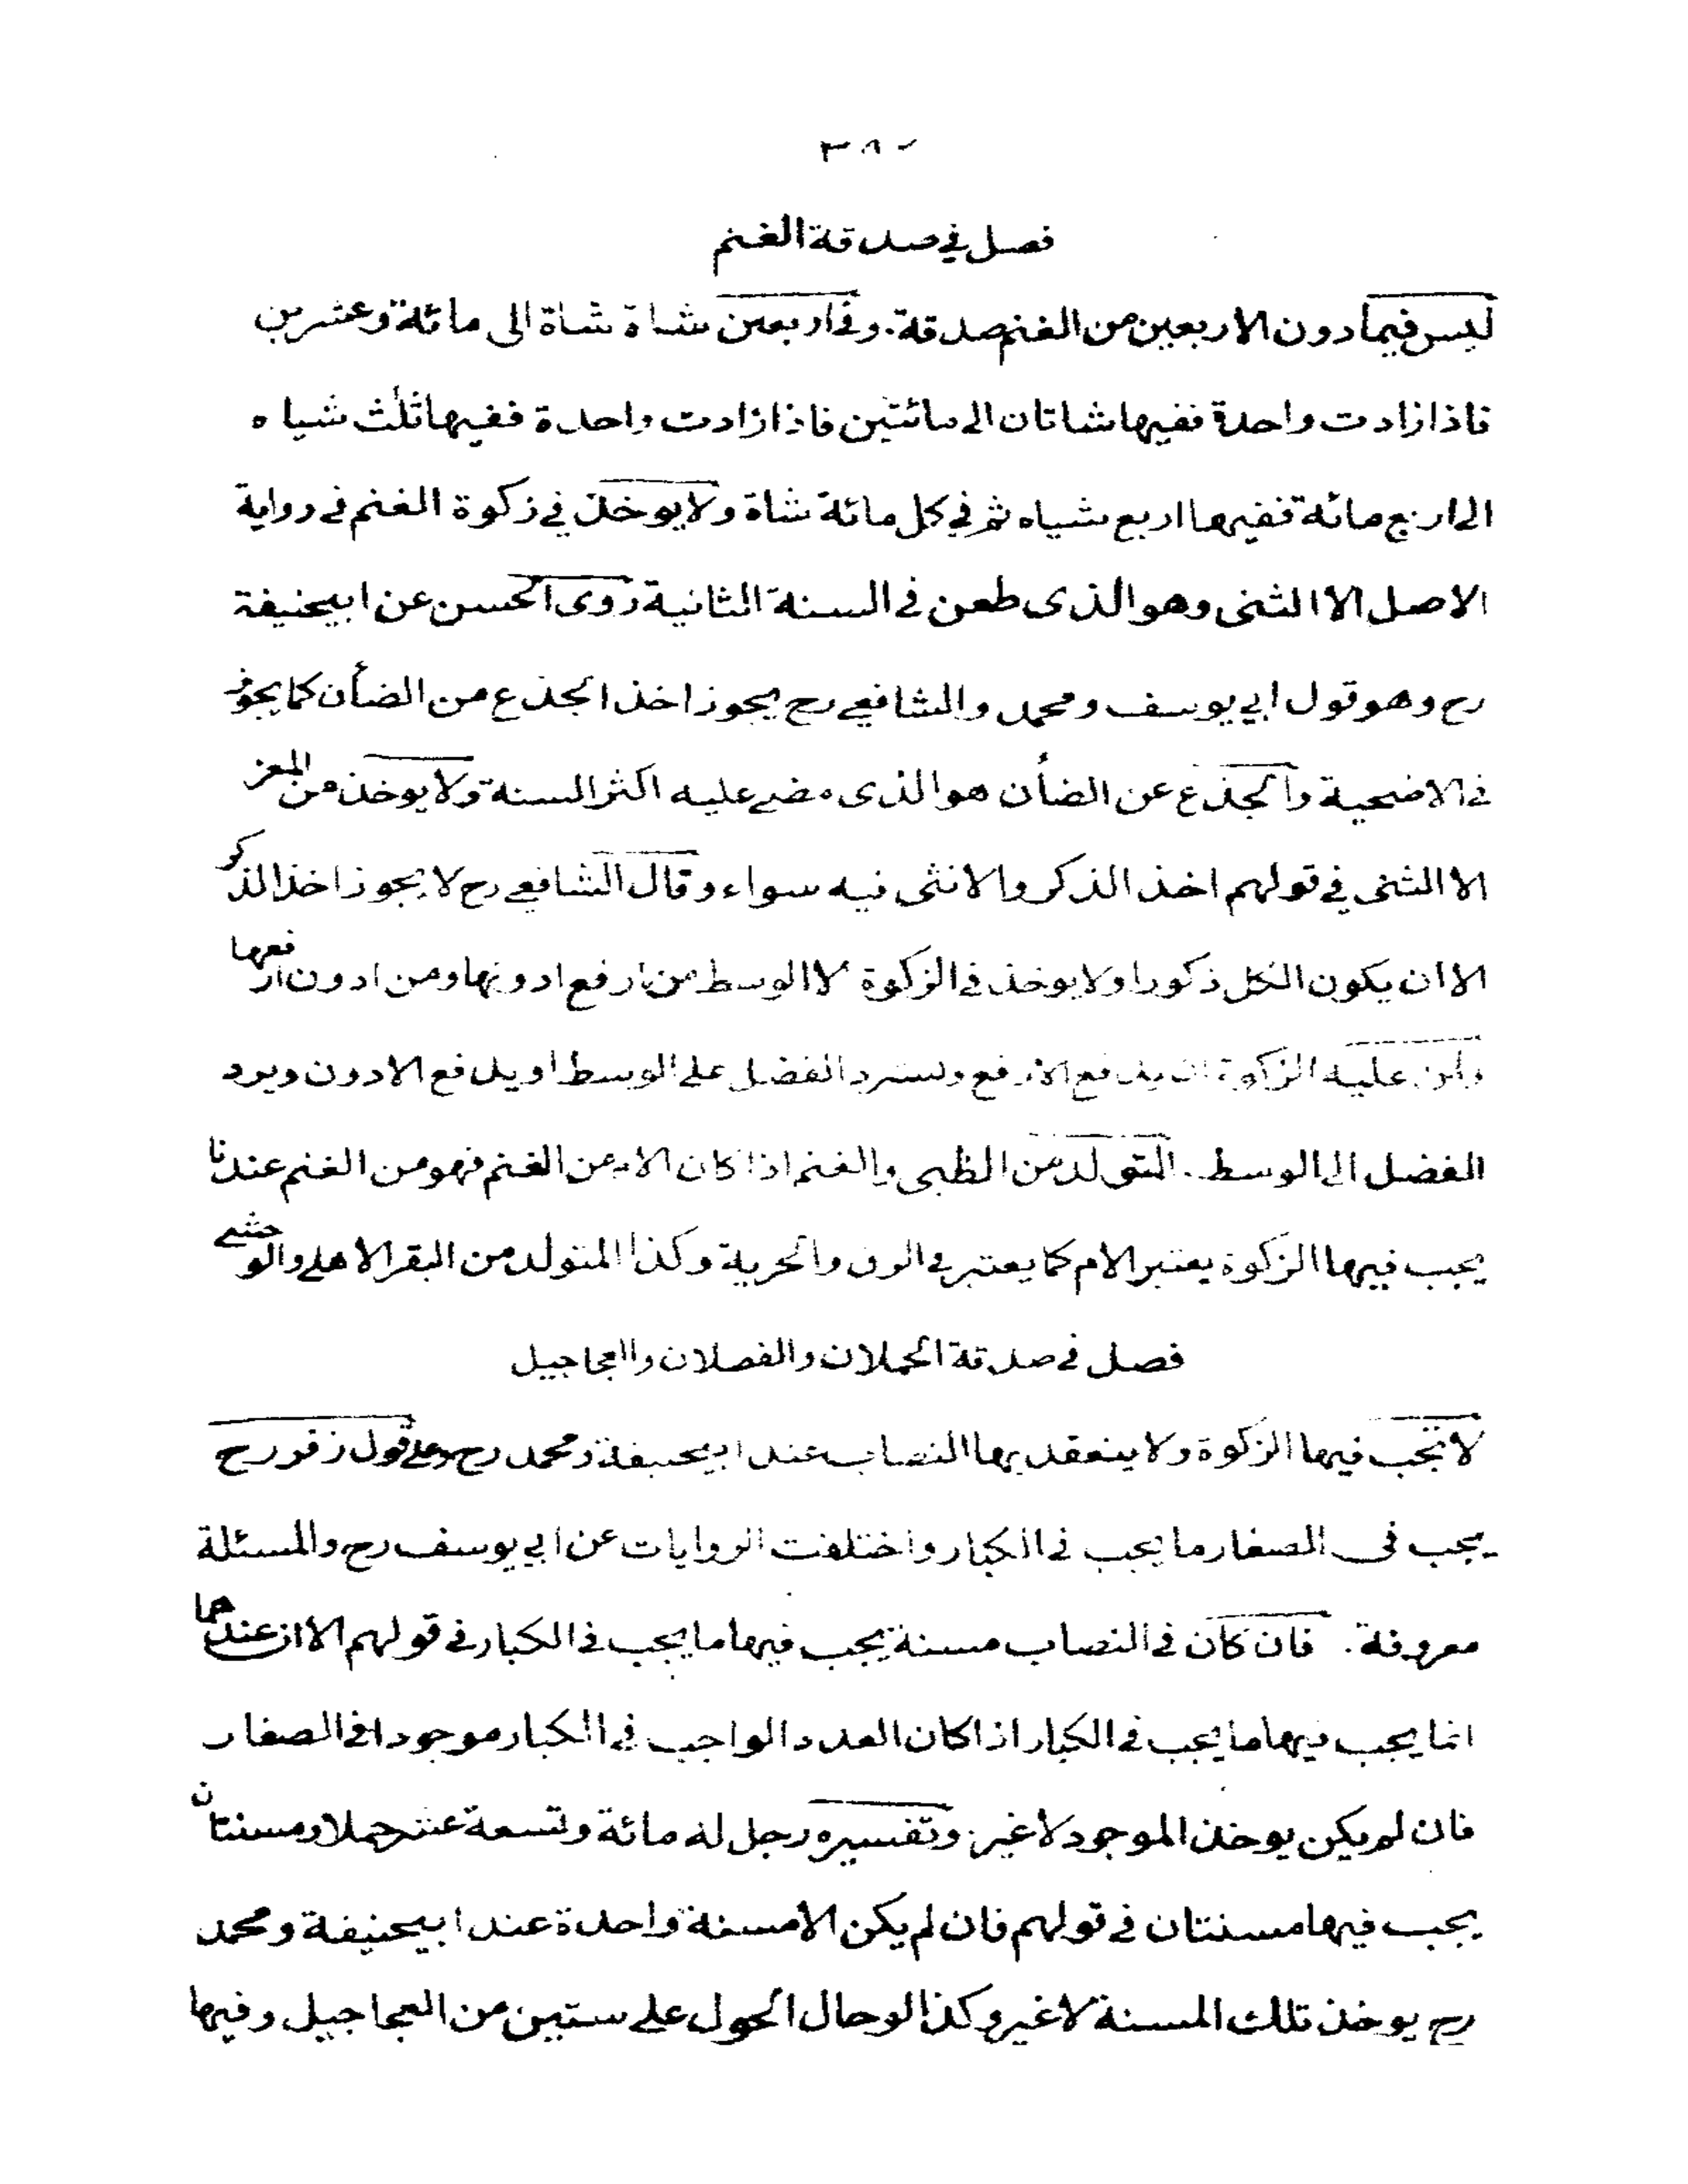 فصل في صدقة الغنم
ليس فيما دون الاربعين من الغنم صدقة. وفي اربعين شاة شاة الى مائة وعشرين
فاذا زادت واحدة ففيها شاتان الى مائتين فاذا زادت واحدة ففيها ثلث شياه
الى اربع مائة ففيها اربع شياه ثم في كل مائة شاة ولا يوخذ في زكوة الغنم في رواية
الاصل الا الثنى وهو الذى طعن في السنة الثانية روى الحسن عن ابيحنيفة
رح وهو قول ابي يوسف ومحمد والشافعي رح يجوز اخذ الجذع من الضأن كما يجوز
في الاضحية والجذع عن الضأن هو الذى مضى عليه اكثر السنة ولا يوخذ من المعز
الا الثنى في قولهم اخذ الذكر والانثى فيه سواء وقال الشافعي رح لا يجوز اخذ الذكر
الا ان يكون الكل ذكورا ولا يوخذ في الزكوة الا الوسط من ارفع ادونها ومن ادون ارفعها
ولمن عليه الزكوة ان يدفع الارفع ويسترد الفضل على الوسط او يدفع الادون ويرد
الفضل الى الوسط. المتولد من الظبى والغنم اذا كان الام من الغنم فهو من الغنم عندنا
يجب فيها الزكوة يعتبر الام كما يعتبر في الرق والحرية وكذا المتولد من البقر الاهلي والوحشي
فصل في صدقة الحملان والفصلان والعجاجيل
لا تجب فيها الزكوة ولا ينعقد بها النصاب عند ابيحنيفة ومحمد رح وعلى قول زفر رح
يجب فى الصغار ما يجب في الكبار واختلفت الروايات عن ابي يوسف رح والمسئلة
معروفة. فان كان في النصاب مسنة يجب فيها ما يجب في الكبار في قولهم الا ان عندهما
انما يجب فيها ما يجب في الكبار اذا كان العدد الواجب في الكبار موجودا في الصغار
فان لم يكن يوخذ الموجود لا غير. وتفسيره رجل له مائة وتسعة عشر حملا ومسنتان
يجب فيها مسنتان في قولهم فان لم يكن الا مسنة واحدة عند ابيحنيفة ومحمد
رح يوخذ تلك المسنة لا غير وكذا لو حال الحول على ستين من العجاجيل وفيها